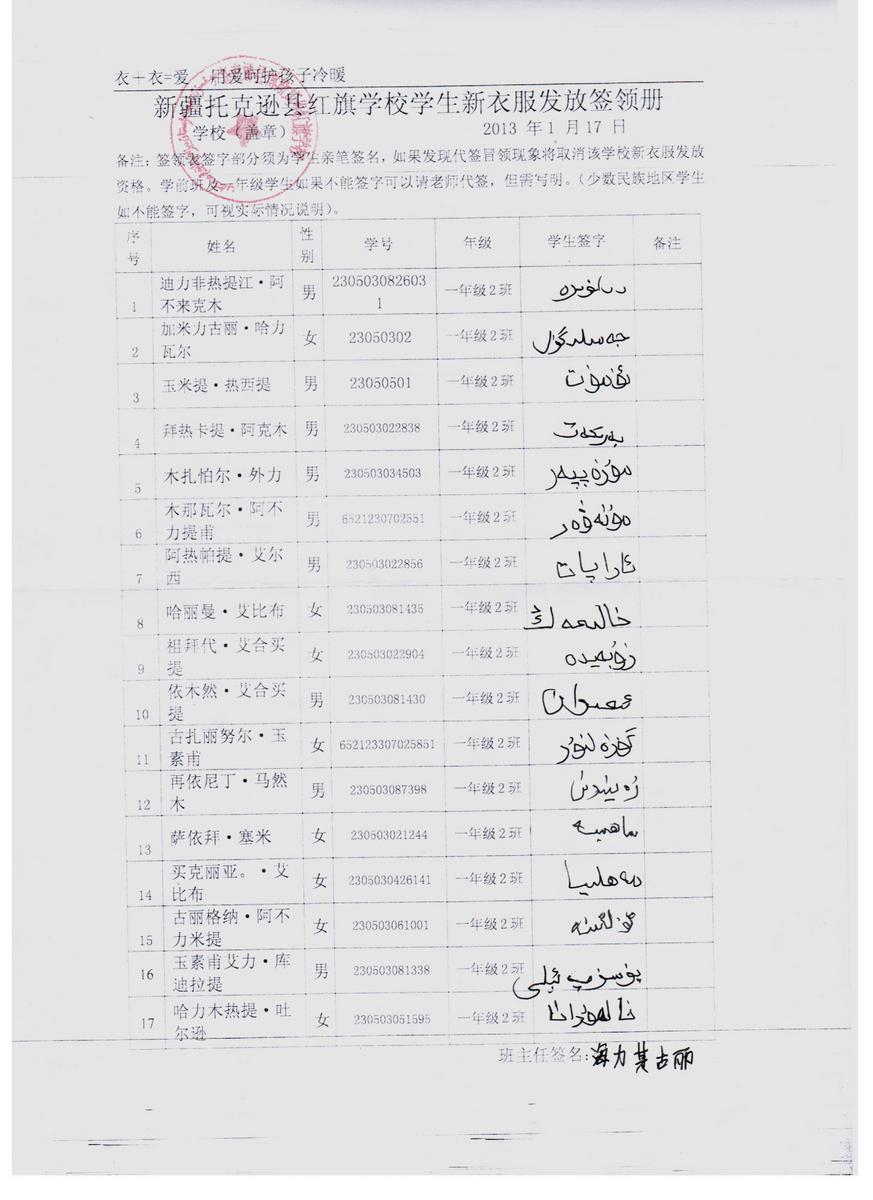 衣+衣=爱 用爱呵护孩子冷暖
新疆托克逊县红旗学校学生新衣服发放签领册
学校（盖章） 2013 年 1 月 17 日
备注：签领表签字部分须为学生亲笔签名，如果发现代签冒领现象将取消该学校新衣服发放
资格。学前班及一年级学生如果不能签字可以请老师代签，但需写明。（少数民族地区学生
如不能签字，可视实际情况说明）。
序号 姓名 性别 学号 年级 学生签字 备注
1 迪力非热提江·阿不来克木 男 2305030826031 一年级2班
2 加米力古丽·哈力瓦尔 女 23050302 一年级2班 جەمىلەگۈل
3 玉米提·热西提 男 23050501 一年级2班 ئۈمۈت
4 拜热卡提·阿克木 男 230503022838 一年级2班 بەرىكەت
5 木扎怕尔·外力 男 230503034503 一年级2班 مۇزەپپەر
6 木那瓦尔·阿不力提甫 男 6521230702551 一年级2班 مۇنەۋەر
7 阿热帕提·艾尔西 男 230503022856 一年级2班 ئاراپات
8 哈丽曼·艾比布 女 230503081435 一年级2班
9 祖拜代·艾合买提 女 230503022904 一年级2班 زۇبەيدە
10 依木然·艾合买提 男 230503081430 一年级2班
11 古扎丽努尔·玉素甫 女 652123307025851 一年级2班
12 再依尼丁·马然木 男 230503087398 一年级2班
13 萨依拜·塞米 女 230503021244 一年级2班
14 买克丽亚。·艾比布 女 2305030426141 一年级2班
15 古丽格纳·阿不力米提 女 230503061001 一年级2班
16 玉素甫艾力·库迪拉提 男 230503081338 一年级2班
17 哈力木热提·吐尔逊 女 230503051595 一年级2班
班主任签名：海力其古丽